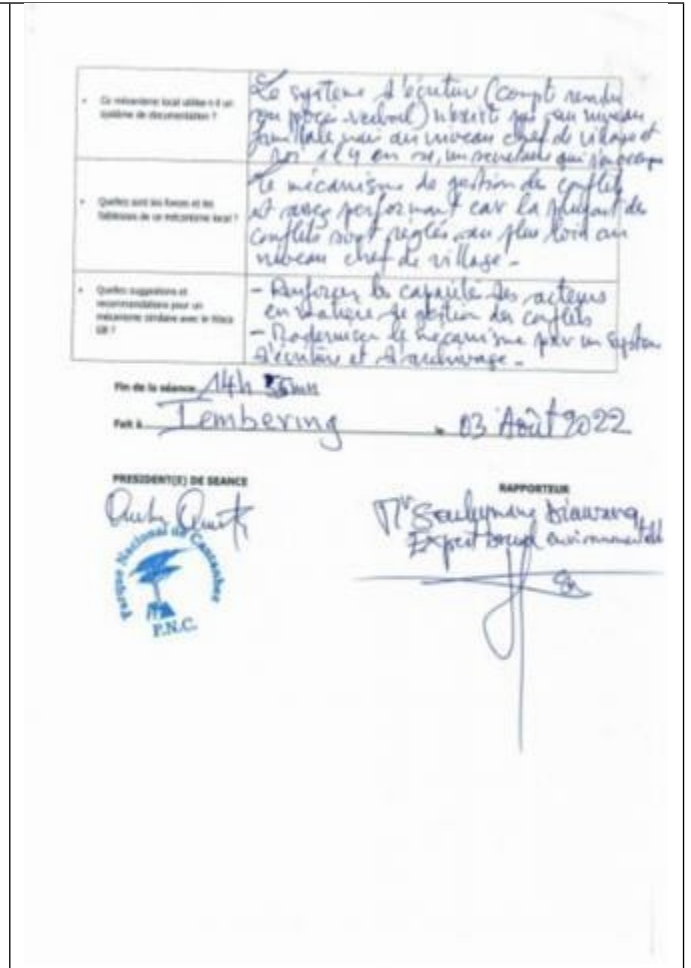 Ce mécanisme local utilise-t-il un
système de documentation ?
Le système d'écriture (compt rendu
ou procès verbal) n'existe pas au niveau
familiale mais au niveau chef de village et
roi il y en a, un secrétaire qui s'en occupe
Quelles sont les forces et les
faiblesses de ce mécanisme local ?
Le mécanisme de gestion de conflits
est assez performant car la plupart des
conflits sont réglés au plus loin au
niveau chef de village -
Quelles suggestions et
recommandations pour un
mécanisme similaire avec le Waca
GB ?
- Renforcer les capacités des acteurs
en matière de gestion des conflits
- Moderniser le mécanisme par un système
d'écriture et d'archivage -
Fin de la séance 14h mn
Fait à Iembering le 03 Août 2022
PRESIDENT(E) DE SEANCE
RAPPORTEUR
Mr Souleymane Diawara
Expert social environnementale
Parque Nacional de Cantanhez
P.N.C.